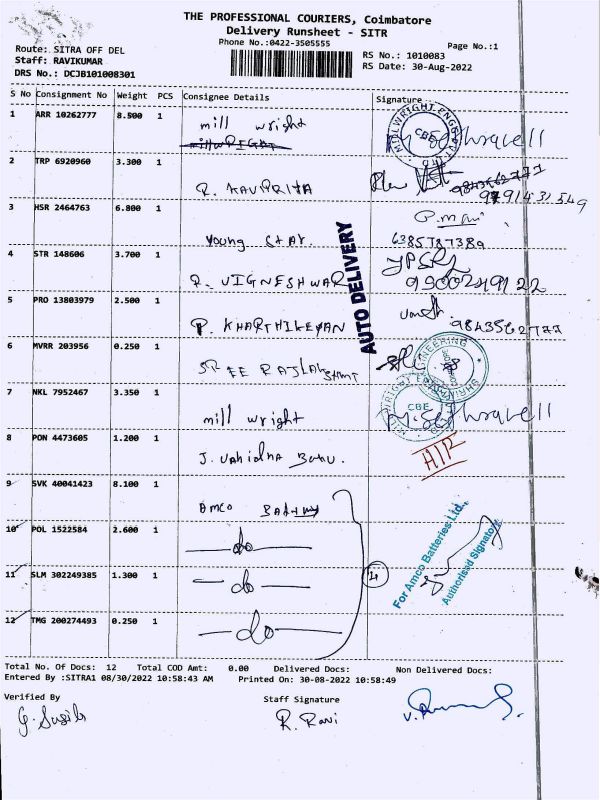 THE PROFESSIONAL COURIERS, Coimbatore
Delivery Runsheet - SITR
Phone No.:0422-3505555
Page No.:1
Route: SITRA OFF DEL
Staff: RAVIKUMAR
DRS No.: DCJB101008301
RS No.: 1010083
RS Date: 30-Aug-2022
S No Consignment No Weight PCS Consignee Details Signature
1 ARR 10262777 8.500 1
mill wright
MILLWRIGHT ENGG
CBE
2 TRP 6920960 3.300 1
R. KAVPRIYA
9843562777
9791431549
3 HSR 2464763 6.800 1
Young Star.
P. mani
6385787389
4 STR 148606 3.700 1
R. VIGNESHWAR
9900249122
AUTO DELIVERY
5 PRO 13803979 2.500 1
P. KHARTHIKEYAN
9843562777
6 MVRR 203956 0.250 1
SREE RAJLAKSHMI
ENGINEERING
7 NKL 7952467 3.350 1
mill wright
CBE
8 PON 4473605 1.200 1
J. Vahidha Banu.
9 SVK 40041423 8.100 1
Amco Battery
10 POL 1522584 2.600 1
— do —
11 SLM 302249385 1.300 1
— do —
4
12 TMG 200274493 0.250 1
— do —
For Amco Batteries Ltd.,
Authorised Signatory
Total No. Of Docs: 12 Total COD Amt: 0.00 Delivered Docs: Non Delivered Docs:
Entered By :SITRA1 08/30/2022 10:58:43 AM Printed On: 30-08-2022 10:58:49
Verified By
Staff Signature
R. Ravi